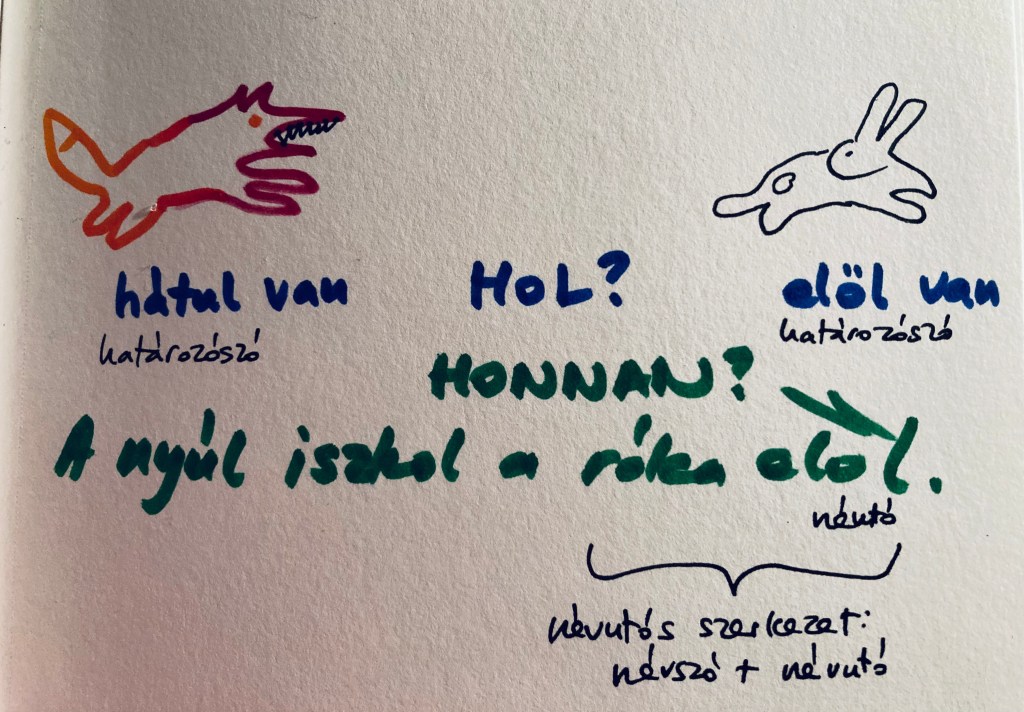 hátul van HOL? elöl van
határozószó határozószó
HONNAN?
A nyúl iszkol a róka elől.
névutó
névutós szerkezet:
névszó + névutó